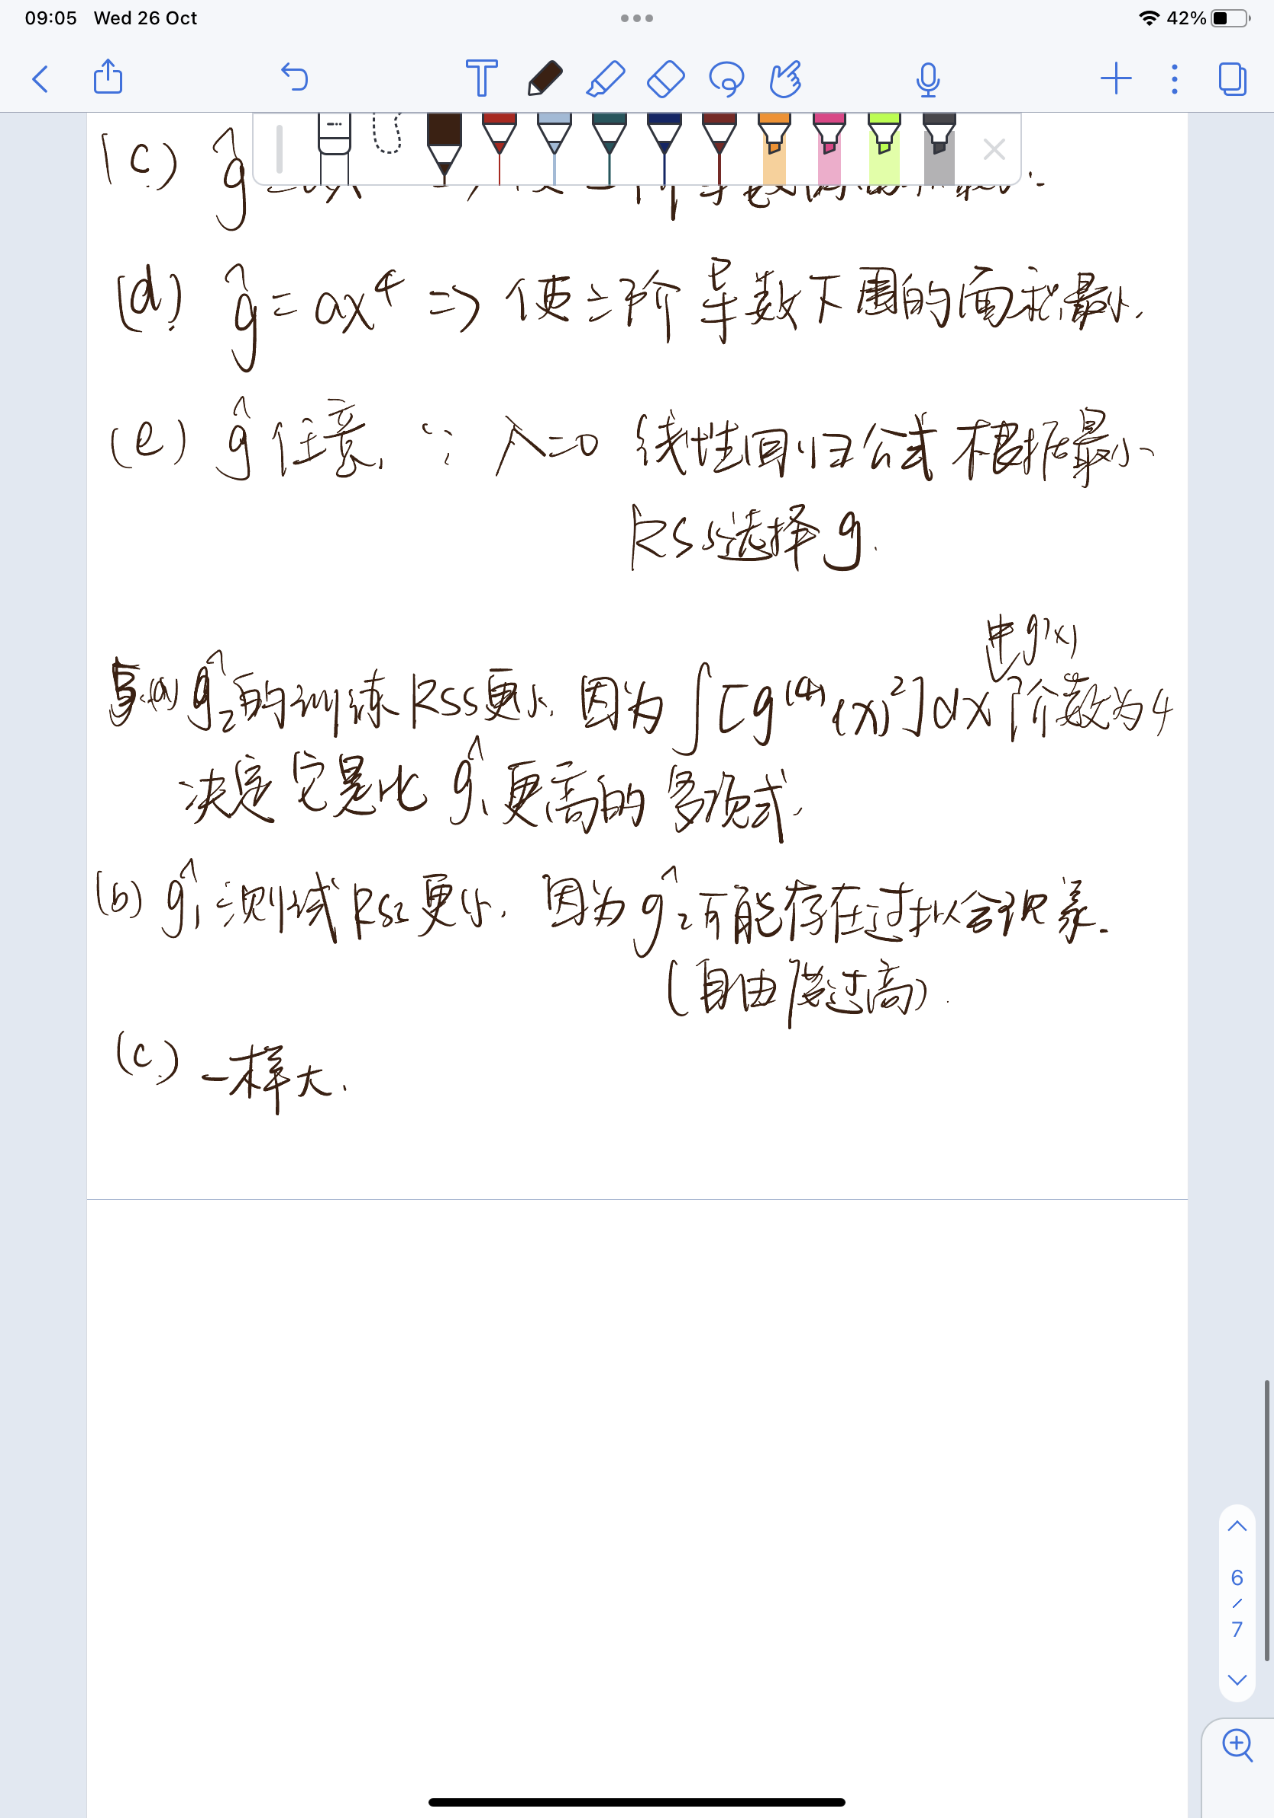 09:05 Wed 26 Oct
42%
(c) ĝ
(d) ĝ = ax⁴ => 使三阶导数下围的面积最小.
(e) ĝ 任意, ∵ λ=0 线性回归公式 根据最小
RSS选择 g.
中g(x)
5.(a) ĝ₂的训练RSS更小, 因为 ∫[g⁽⁴⁾(x)²]dx 阶数为4
决定它是比 ĝ₁更高的多项式.
(b) ĝ₁测试RSS更小, 因为ĝ₂可能存在过拟合现象.
(自由度过高).
(c) 一样大.
6
/
7